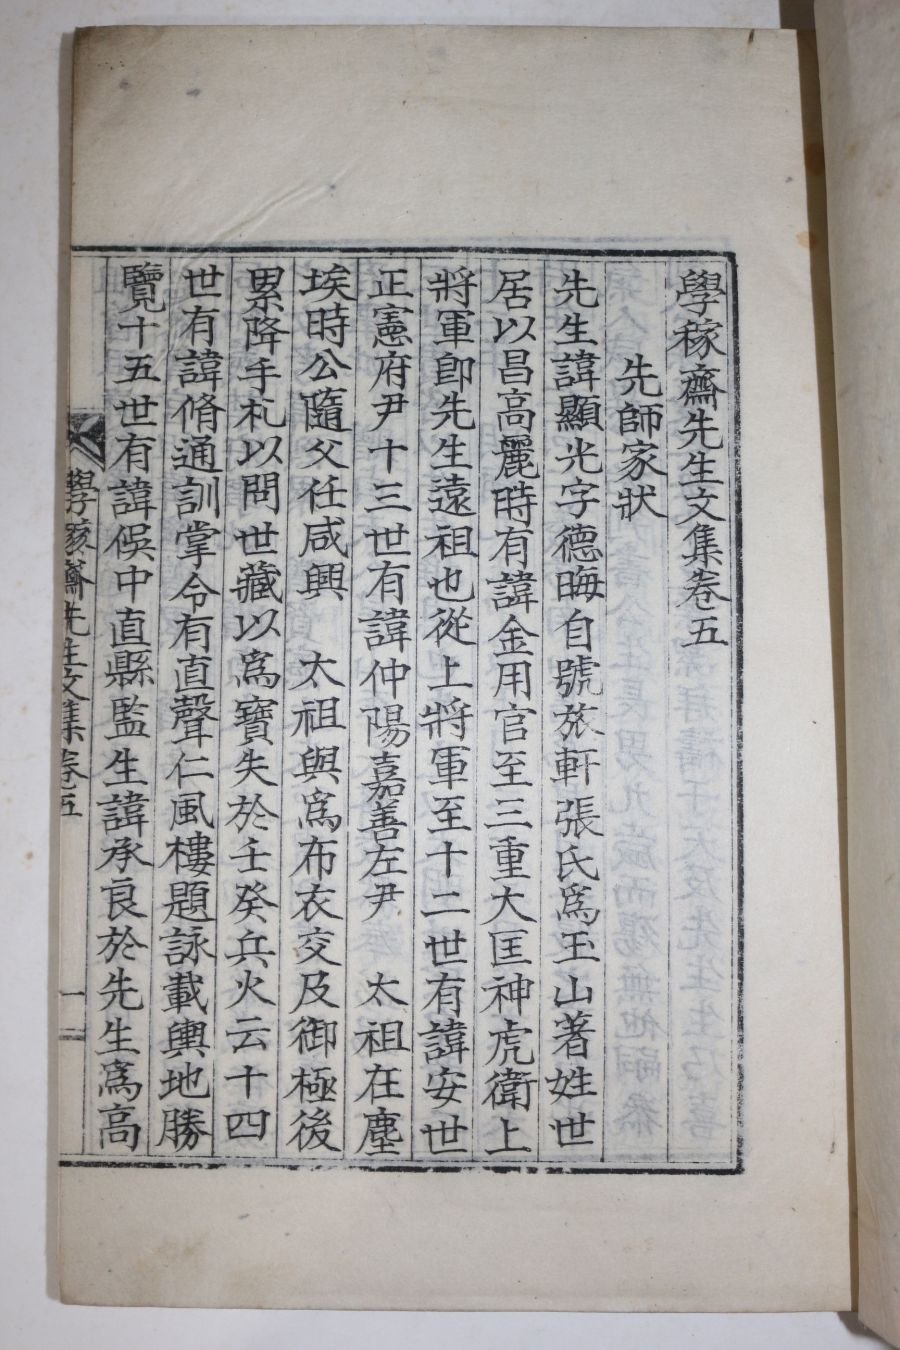 學稼齋先生文集卷五
先師家狀
先生諱顯光字德晦自號旅軒張氏爲玉山著姓世
居以昌高麗時有諱金用官至三重大匡神虎衛上
將軍卽先生遠祖也從上將軍至十二世有諱安世
正憲府尹十三世有諱仲陽嘉善左尹 太祖在塵
埃時公隨父任咸興 太祖與爲布衣交及御極後
累降手札以問世藏以爲寶失於壬癸兵火云十四
世有諱脩通訓掌令有直聲仁風樓題詠載輿地勝
覽十五世有諱俁中直縣監生諱承良於先生爲高
學稼齋先生文集卷五
一